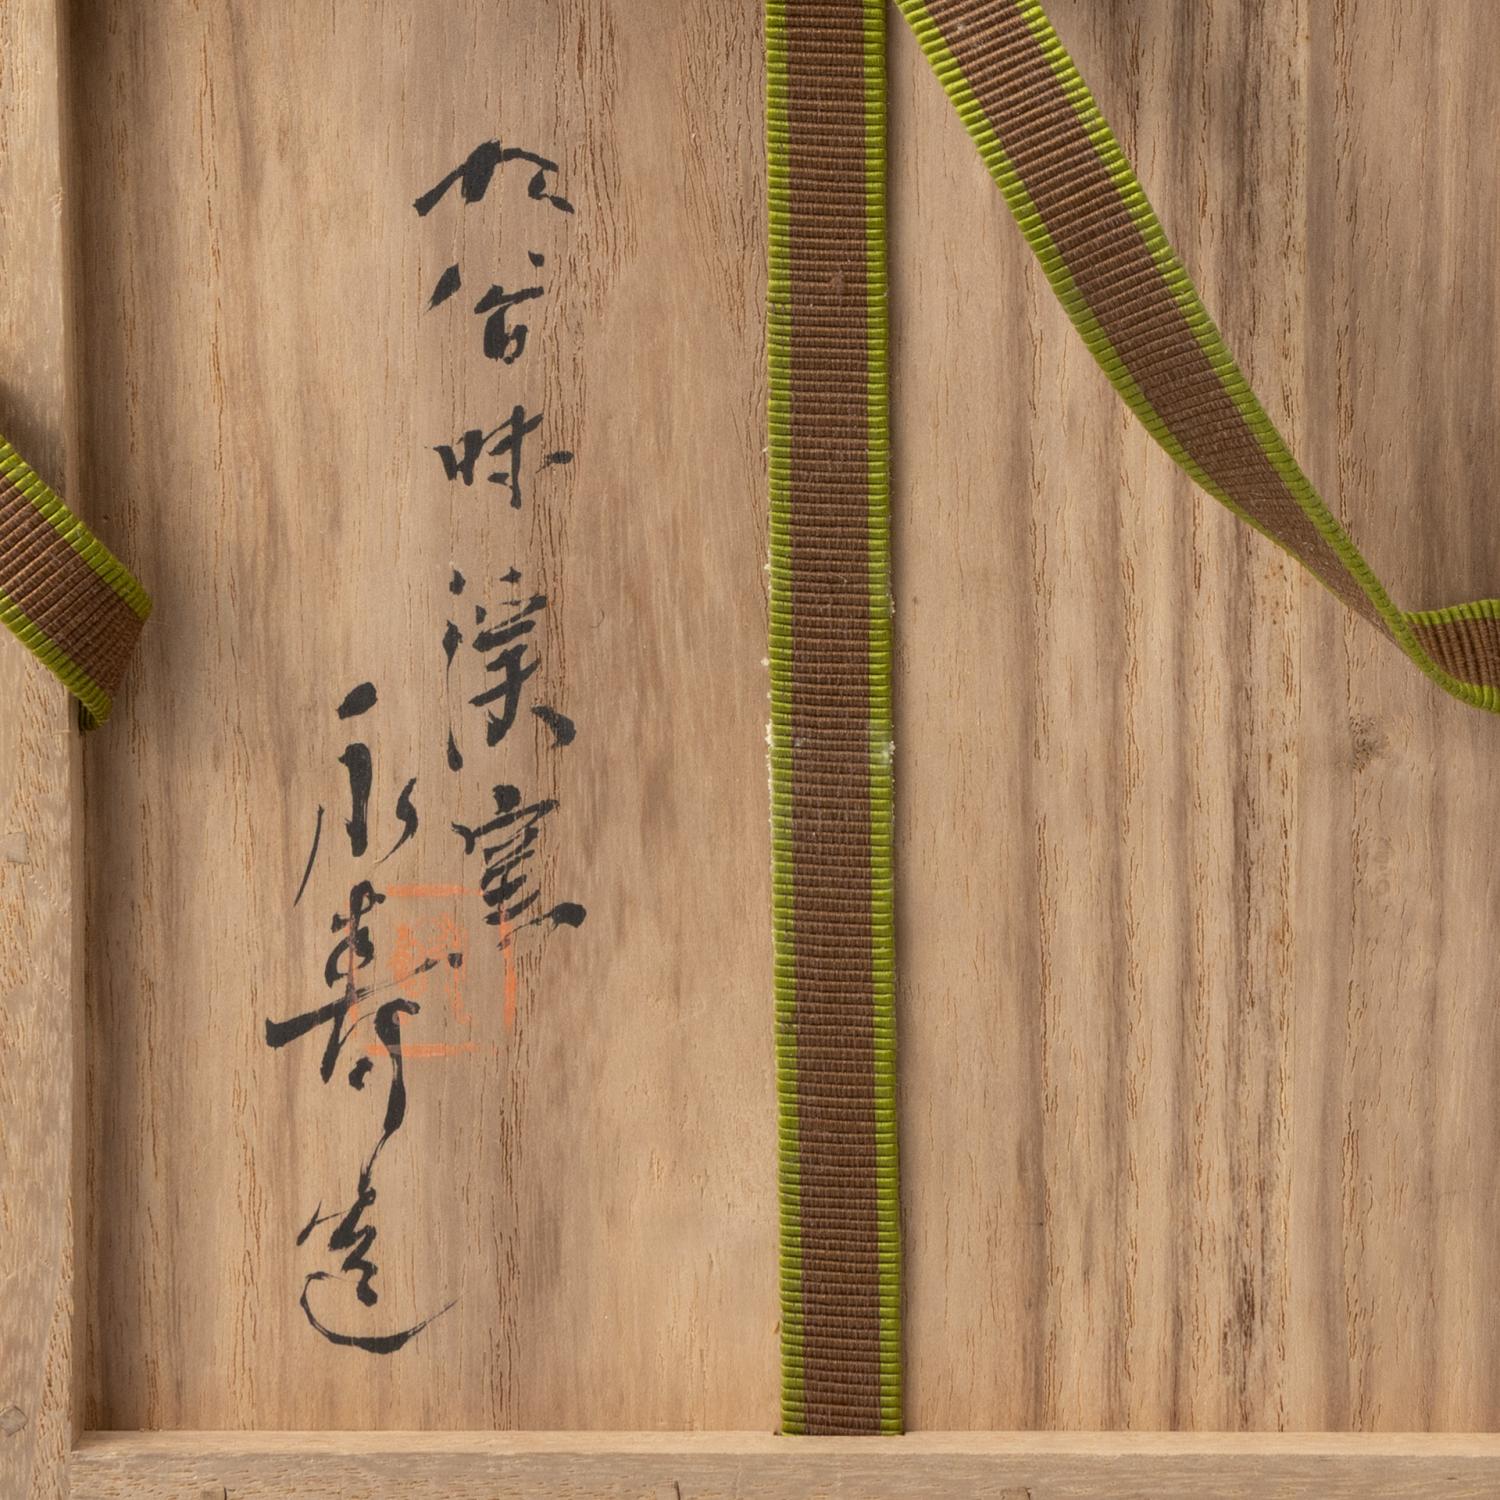 於谷味渓窯
永寿造